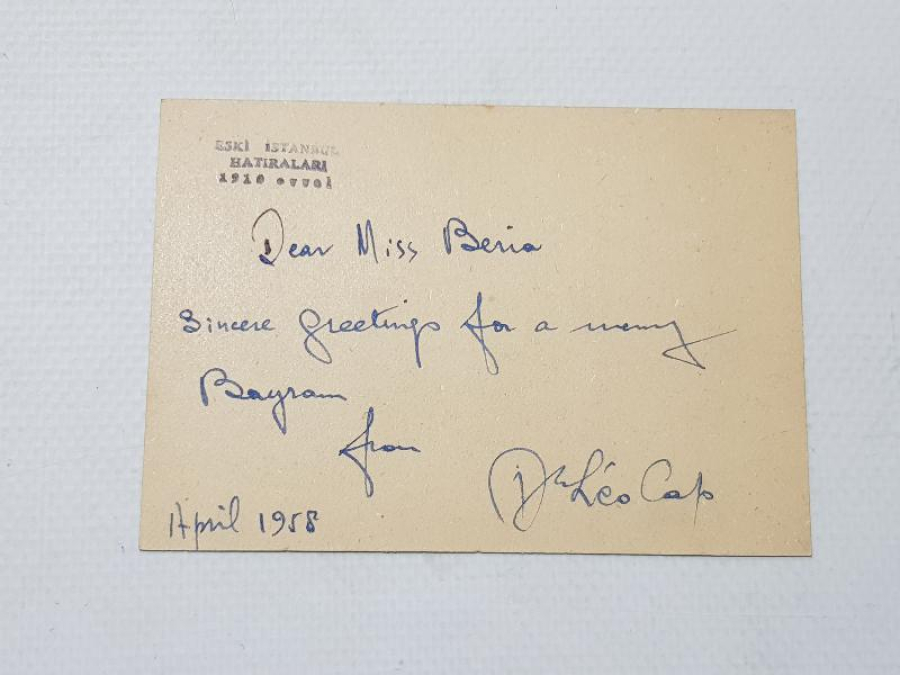 ESKİ İSTANBUL
HATIRALARI
1910 evveli
Dear Miss Beria
Sincere Greetings for a merry
Bayram
from
Dr Léo Cap
April 1958